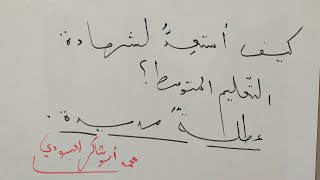 كيف أستعِدُّ لشهادة
التّعليم المتوسط؟
عطلةً مديدة.
محمد أبو شاكر العبودي